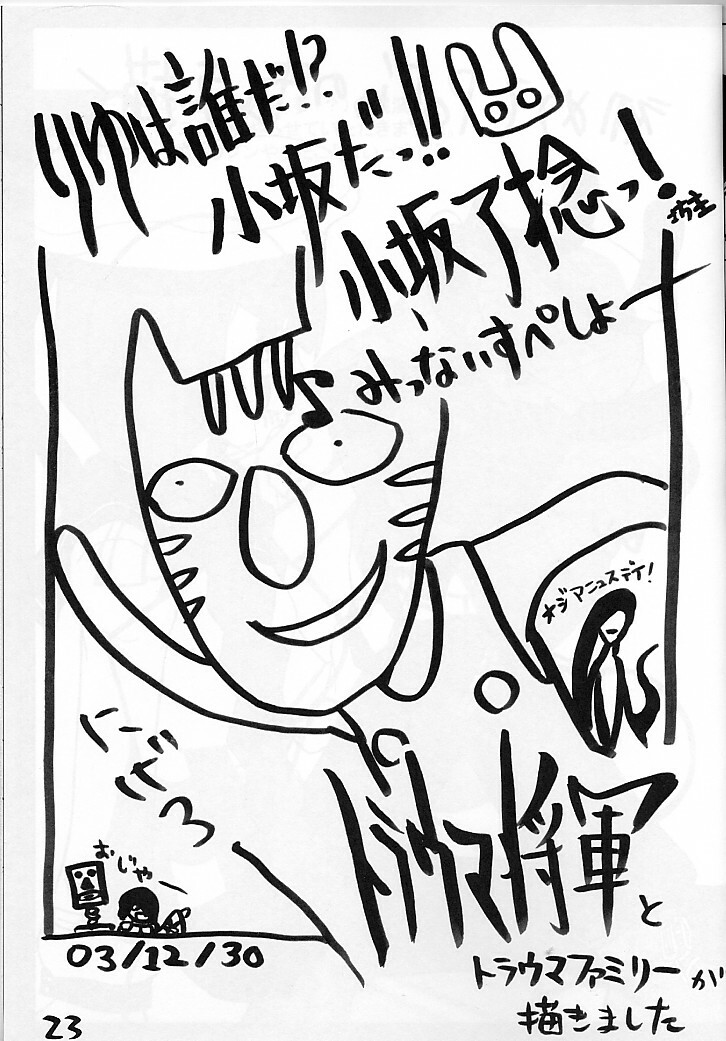 りゆは誰だ!?
小坂だっ!!
小坂了捻っ!
みっないすぺしょー
★ジマニュスデイ!
おじゃー
トラウマ将軍と
トラウマファミリーが
描きました
03/12/30
23